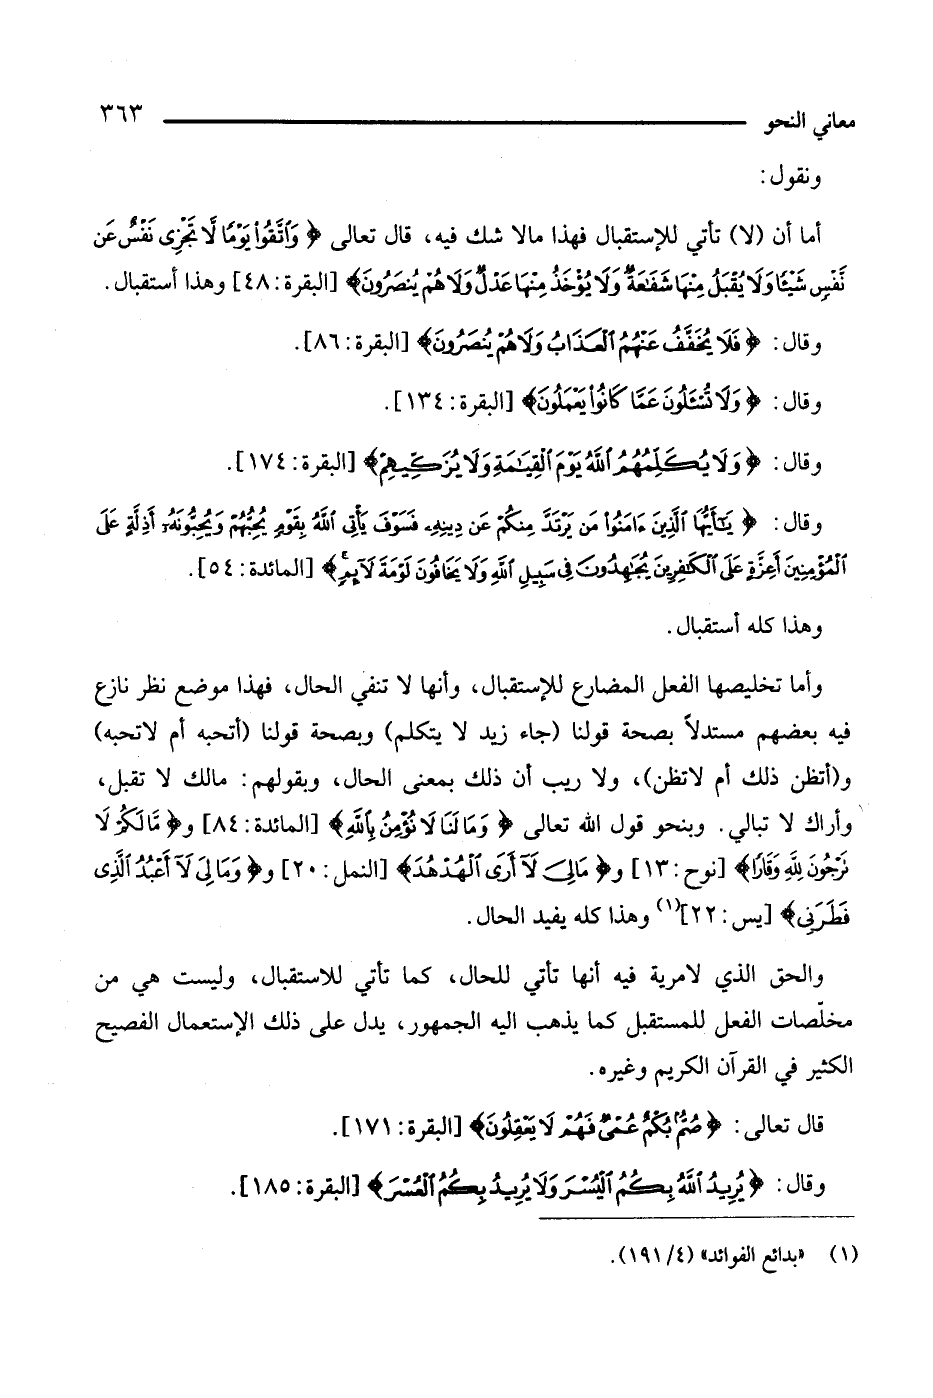 معاني النحو ٣٦٣
ونقول:
أما أن (لا) تأتي للإستقبال فهذا مالا شك فيه، قال تعالى ﴿ وَٱتَّقُوا۟ يَوْمًا لَّا تَجْزِى نَفْسٌ عَن
نَّفْسٍ شَيْـًٔا وَلَا يُقْبَلُ مِنْهَا شَفَـٰعَةٌ وَلَا يُؤْخَذُ مِنْهَا عَدْلٌ وَلَا هُمْ يُنصَرُونَ﴾ [البقرة: ٤٨] وهذا أستقبال.
وقال: ﴿ فَلَا يُخَفَّفُ عَنْهُمُ ٱلْعَذَابُ وَلَا هُمْ يُنصَرُونَ﴾ [البقرة: ٨٦].
وقال: ﴿ وَلَا تُسْـَٔلُونَ عَمَّا كَانُوا۟ يَعْمَلُونَ﴾ [البقرة: ١٣٤].
وقال: ﴿ وَلَا يُكَلِّمُهُمُ ٱللَّهُ يَوْمَ ٱلْقِيَـٰمَةِ وَلَا يُزَكِّيهِمْ﴾ [البقرة: ١٧٤].
وقال: ﴿ يَـٰٓأَيُّهَا ٱلَّذِينَ ءَامَنُوا۟ مَن يَرْتَدَّ مِنكُمْ عَن دِينِهِۦ فَسَوْفَ يَأْتِى ٱللَّهُ بِقَوْمٍ يُحِبُّهُمْ وَيُحِبُّونَهُۥٓ أَذِلَّةٍ عَلَى
ٱلْمُؤْمِنِينَ أَعِزَّةٍ عَلَى ٱلْكَـٰفِرِينَ يُجَـٰهِدُونَ فِى سَبِيلِ ٱللَّهِ وَلَا يَخَافُونَ لَوْمَةَ لَآئِمٍ ۚ﴾ [المائدة: ٥٤].
وهذا كله أستقبال.
وأما تخليصها الفعل المضارع للإستقبال، وأنها لا تنفي الحال، فهذا موضع نظر نازع
فيه بعضهم مستدلاً بصحة قولنا (جاء زيد لا يتكلم) وبصحة قولنا (أتحبه أم لاتحبه)
و(أتظن ذلك أم لاتظن)، ولا ريب أن ذلك بمعنى الحال، وبقولهم: مالك لا تقبل،
وأراك لا تبالي. وبنحو قول الله تعالى ﴿ وَمَا لَنَا لَا نُؤْمِنُ بِٱللَّهِ﴾ [المائدة: ٨٤] و﴿ مَّا لَكُمْ لَا
تَرْجُونَ لِلَّهِ وَقَارًا﴾ [نوح: ١٣] و﴿ مَالِىَ لَآ أَرَى ٱلْهُدْهُدَ﴾ [النمل: ٢٠] و﴿ وَمَا لِىَ لَآ أَعْبُدُ ٱلَّذِى
فَطَرَنِى﴾ [يس: ٢٢]⁽¹⁾ وهذا كله يفيد الحال.
والحق الذي لامرية فيه أنها تأتي للحال، كما تأتي للاستقبال، وليست هي من
مخلّصات الفعل للمستقبل كما يذهب اليه الجمهور، يدل على ذلك الإستعمال الفصيح
الكثير في القرآن الكريم وغيره.
قال تعالى: ﴿ صُمٌّۢ بُكْمٌ عُمْىٌ فَهُمْ لَا يَعْقِلُونَ﴾ [البقرة: ١٧١].
وقال: ﴿ يُرِيدُ ٱللَّهُ بِكُمُ ٱلْيُسْرَ وَلَا يُرِيدُ بِكُمُ ٱلْعُسْرَ﴾ [البقرة: ١٨٥].
(١) «بدائع الفوائد» (٤/ ١٩١).